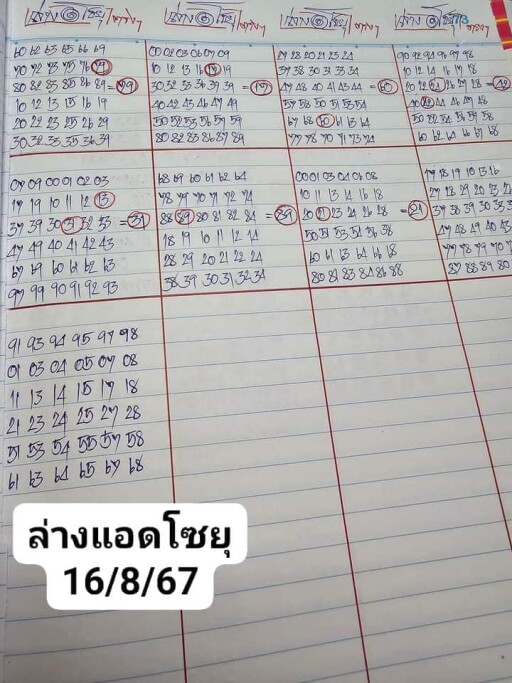 60 62 63 65 66 69
70 72 73 75 76 79
80 82 83 85 86 89 = 79
10 12 13 15 16 19
20 22 23 25 26 29
30 32 33 35 36 39
00 02 03 06 07 09
10 12 13 16 17 19
30 32 33 36 37 39 = 17
40 42 43 46 47 49
50 52 53 56 57 59
80 82 83 86 87 89
27 28 20 21 23 24
37 38 30 31 33 34
47 48 40 41 43 44 = 60
57 58 50 51 53 54
67 68 60 61 63 64
77 78 70 71 73 74
90 92 94 96 97 98
10 12 14 16 17 18
20 22 24 26 27 28 = 42
40 42 44 46 47 48
50 52 54 56 57 58
60 62 64 66 67 68
07 09 00 01 02 03
17 19 10 11 12 13
37 39 30 31 32 33 = 31
47 49 40 41 42 43
67 69 60 61 62 63
97 99 90 91 92 93
68 69 60 61 62 64
78 79 70 71 72 74
88 89 80 81 82 84 = 89
18 19 10 11 12 14
28 29 20 21 22 24
38 39 30 31 32 34
00 01 03 04 06 08
10 11 13 14 16 18
20 21 23 24 26 28 = 21
50 51 53 54 56 58
60 61 63 64 66 68
80 81 83 84 86 88
17 18 19 10 13 16
27 28 29 20 23
37 38 39 30 33
47 48 49 40 43
77 78 79 70
87 88 89 80
91 93 94 95 97 98
01 03 04 05 07 08
11 13 14 15 17 18
21 23 24 25 27 28
51 53 54 55 57 58
61 63 64 65 67 68
ล่างแอดโซยุ
16/8/67